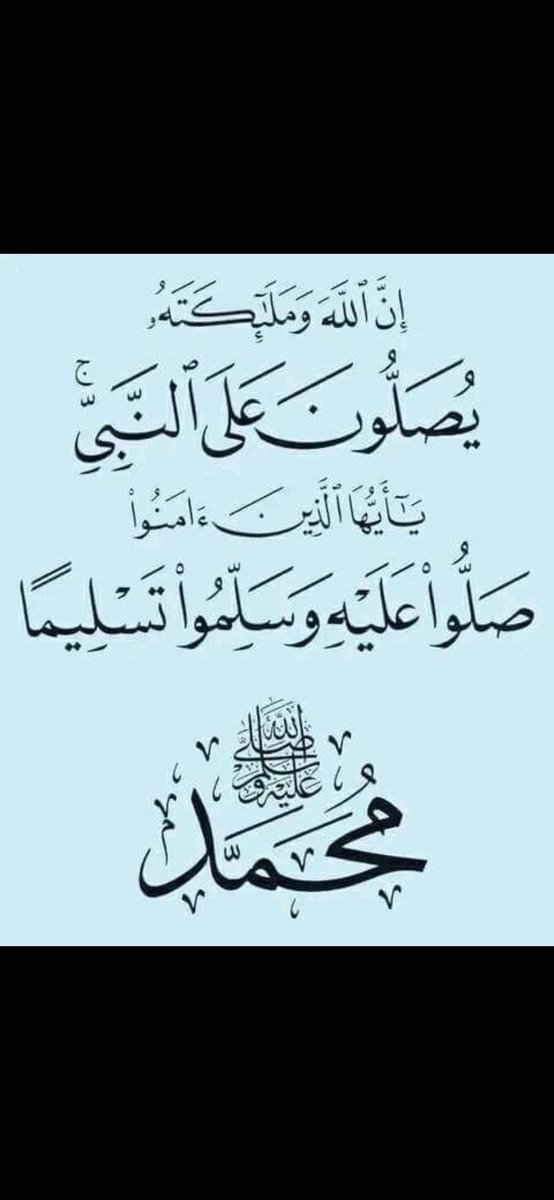 إِنَّ ٱللَّهَ وَمَلَـٰٓئِكَتَهُۥ
يُصَلُّونَ عَلَى ٱلنَّبِىِّ ۚ
يَـٰٓأَيُّهَا ٱلَّذِينَ ءَامَنُوا۟
صَلُّوا۟ عَلَيْهِ وَسَلِّمُوا۟ تَسْلِيمًا
صلى الله عليه وسلم
مُحَمَّد